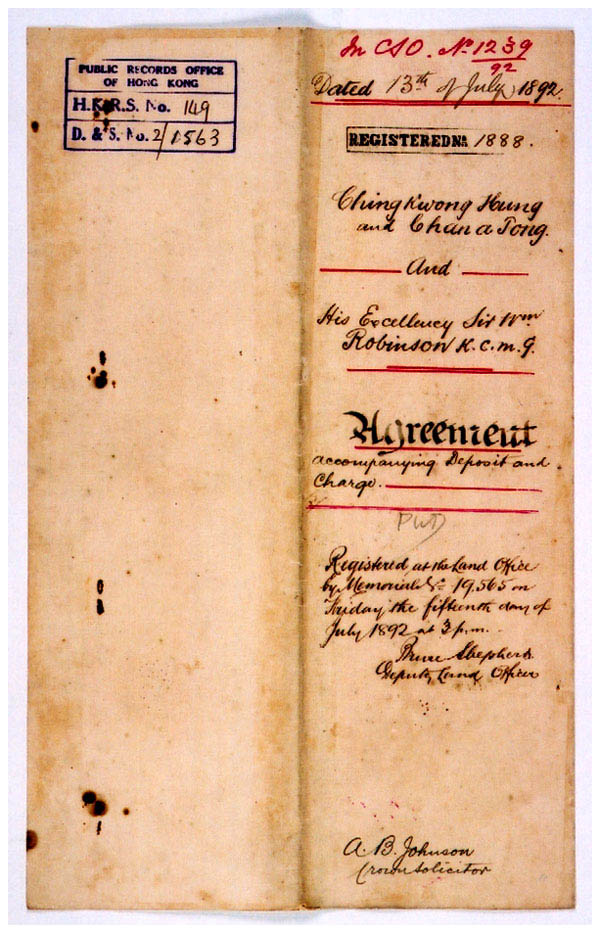 PUBLIC RECORDS OFFICE
OF HONG KONG
H.K.R.S. No. 149
D. & S. No. 2/1563
In CSO. No. 1239
92
Dated 13th of July, 1892.
REGISTERED No. 1888.
Ching Kwong Hung
and Chan a Tong.
And
His Excellency Sir Wm
Robinson K.C.M.G.
Agreement
accompanying Deposit and
Charge.
PWD
Registered at the Land Office
by Memorial No. 19,565 on
Friday the fifteenth day of
July 1892 at 3 p.m.
Bruce Shepherd
Deputy Land Officer
A. B. Johnson
Crown Solicitor